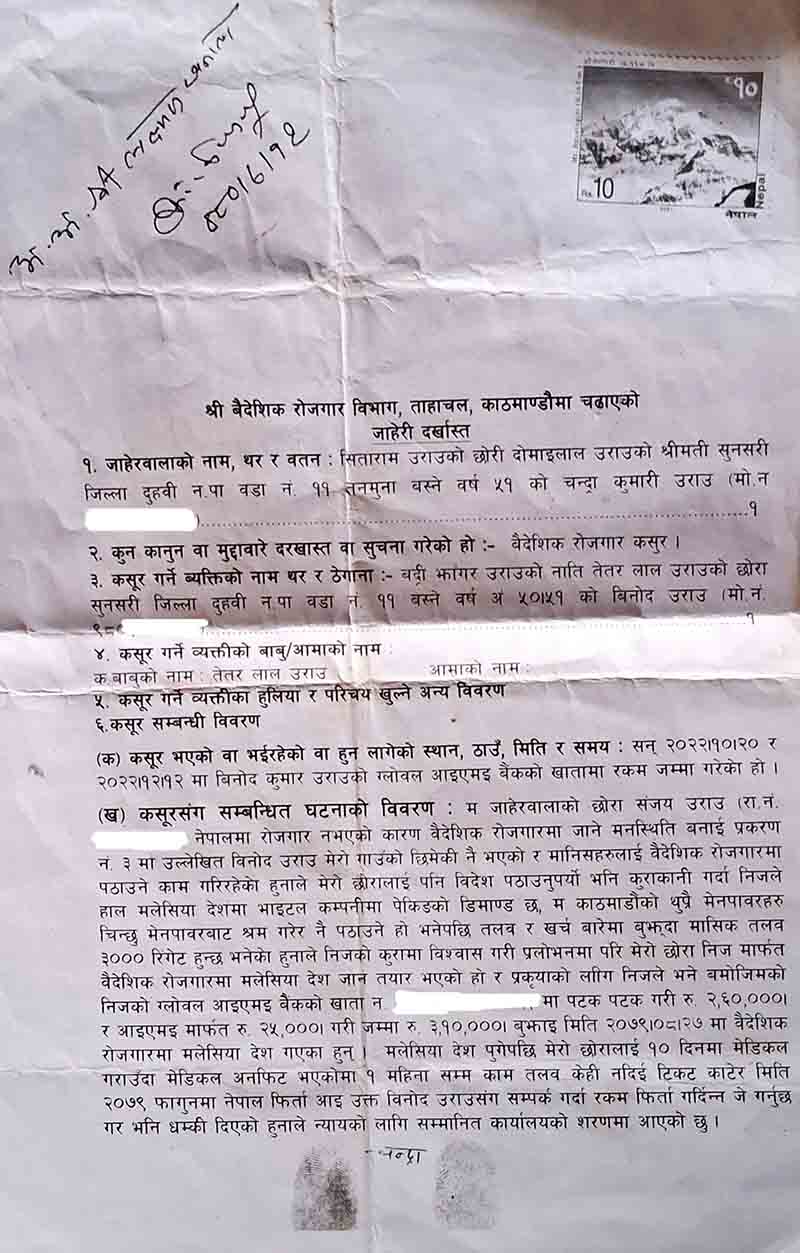 अ.अ. श्री
२०८०।६।१२
रु१०
Rs. 10
नेपाल
Nepal
श्री बैदेशिक रोजगार विभाग, ताहाचल, काठमाण्डौमा चढाएको
जाहेरी दर्खास्त
१. जाहेरवालाको नाम, थर र वतन : सिताराम उराउको छोरी दोमाइलाल उराउको श्रीमती सुनसरी
जिल्ला दुहवी न.पा वडा नं. ११ तनमुना बस्ने वर्ष ५१ को चन्द्रा कुमारी उराउ (मो.न
)...१
२. कुन कानुन वा मुद्दावारे दरखास्त वा सुचना गरेको हो :- बैदेशिक रोजगार कसुर ।
३. कसूर गर्ने ब्यक्तिको नाम थर र ठेगाना :- बद्री झांगर उराउको नाति तेतर लाल उराउको छोरा
सुनसरी जिल्ला दुहवी न.पा वडा नं. ११ बस्ने वर्ष अं ५०।५१ को बिनोद उराउ (मो.नं.
९८९...१
४. कसूर गर्ने व्यक्तीको बाबु/आमाको नाम :
क.बाबुको नाम : तेतर लाल उराउ आमाको नाम :
५. कसूर गर्ने व्यक्तीका हुलिया र परिचय खुल्ने अन्य विवरण
६.कसूर सम्बन्धी विवरण
(क) कसूर भएको वा भईरहेको वा हुन लागेको स्थान, ठाउँ, मिति र समय : सन् २०२२।१०।२० र
२०२२।१२।१२ मा बिनोद कुमार उराउको ग्लोवल आइएमइ बैंकको खातामा रकम जम्मा गरेको हो ।
(ख) कसूरसंग सम्बन्धित घटनाको विवरण : म जाहेरवालाको छोरा संजय उराउ (रा.नं.
नेपालमा रोजगार नभएको कारण वैदेशिक रोजगारमा जाने मनस्थिति बनाई प्रकरण
नं. ३ मा उल्लेखित विनोद उराउ मेरो गाउंको छिमेकी नै भएको र मानिसहरुलाई वैदेशिक रोजगारमा
पठाउने काम गरिरहेको हुनाले मेरो छोरालाई पनि विदेश पठाउनुपर्यो भनि कुराकानी गर्दा निजले
हाल मलेसिया देशमा भाइटल कम्पनीमा पेकिङको डिमाण्ड छ, म काठमाडौको थुप्रै मेनपावरहरु
चिन्छु मेनपावरबाट श्रम गरेर नै पठाउने हो भनेपछि तलव र खर्च बारेमा बुझ्दा मासिक तलव
३००० रिंगेट हुन्छ भनेको हुनाले निजको कुरामा विश्वास गरी प्रलोभनमा परि मेरो छोरा निज मार्फत
वैदेशिक रोजगारमा मलेसिया देश जान तयार भएको हो र प्रकृयाको लागि निजले भने बमोजिमको
निजको ग्लोवल आइएमइ बैंकको खाता न. मा पटक पटक गरी रु. २,६०,०००।
र आइएमइ मार्फत रु. २५,०००। गरी जम्मा रु. ३,१०,०००। बुझाइ मिति २०७९।०८।२७ मा वैदेशिक
रोजगारमा मलेसिया देश गएका हुन् । मलेसिया देश पुगेपछि मेरो छोरालाई १० दिनमा मेडिकल
गराउँदा मेडिकल अनफिट भएकोमा १ महिना सम्म काम तलव केही नदिई टिकट काटेर मिति
२०७९ फागुनमा नेपाल फिर्ता आइ उक्त विनोद उराउसंग सम्पर्क गर्दा रकम फिर्ता गर्दिन्न जे गर्नुछ
गर भनि धम्की दिएको हुनाले न्यायको लागि सम्मानित कार्यालयको शरणमा आएको छु ।
चन्द्रा